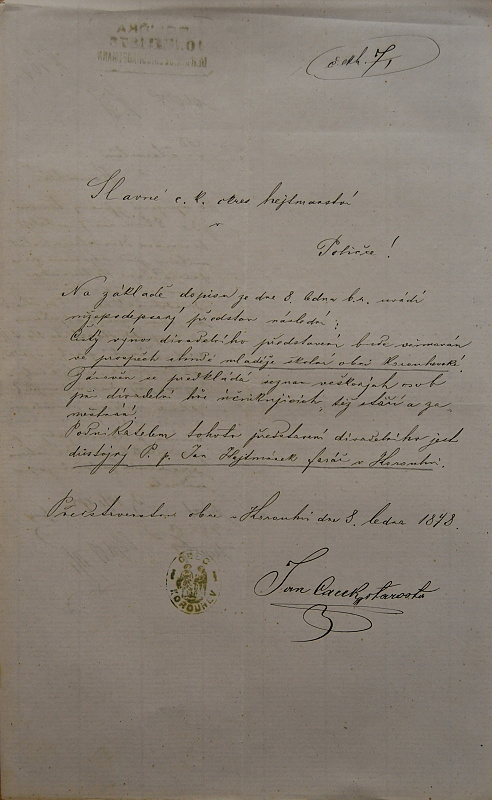 Slavné c. k. okres hejtmanství
v
Poličce!
Na základě dopisu ze dne 8. ledna b. r. uvádí
nížepodepsaný představ následní:
Čistý výnos divadelního představení bude věnován
ve prospěch chudé mládeže školní obce Korouhevské.
Zároveň se předkládá seznam veškerých osob
při divadelní hře účinkujících, též stáří a za-
městnání.
Podnikatelem tohoto představení divadelního jest
důstojný P. p. Jan Hejtmánek farář v Korouhvi.
Představenstvo obce v Korouhvi dne 8. ledna 1878.
OBEC
KOROUHEV
Jan Cacek starosta